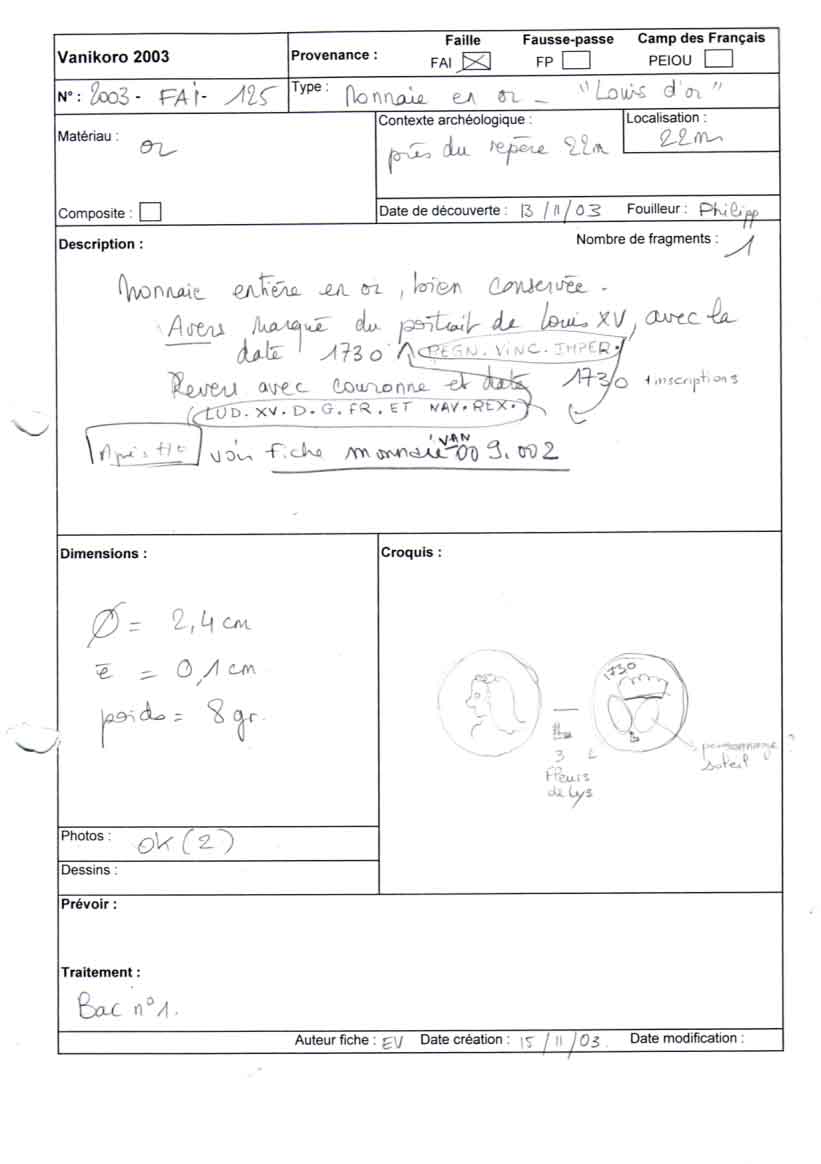 Vanikoro 2003
Provenance :
Faille
FAI
Fausse-passe
FP
Camp des Français
PEIOU
N° : 2003 - FAI - 125
Type : Monnaie en or - "Louis d'or"
Matériau : or
Composite :
Contexte archéologique :
près du repère 22m
Localisation :
22m
Date de découverte : 13/11/03
Fouilleur : Philipp
Description :
Nombre de fragments : 1
Monnaie entière en or, bien conservée.
Avers marqué du portrait de Louis XV, avec la
date 1730 REGN. VINC. IMPER.
Revers avec couronne et date 1730 + inscriptions
LUD. XV. D. G. FR. ET NAV. REX.
voir fiche monnaie VAN 009.002
Dimensions :
Ø = 2,4 cm
e = 0,1 cm
poids = 8 gr.
Croquis :
1730
3 L
Fleurs
de Lys
personnage ?
soleil
Photos : OK (2)
Dessins :
Prévoir :
Traitement :
Bac n°1.
Auteur fiche : EV
Date création : 15/11/03.
Date modification :